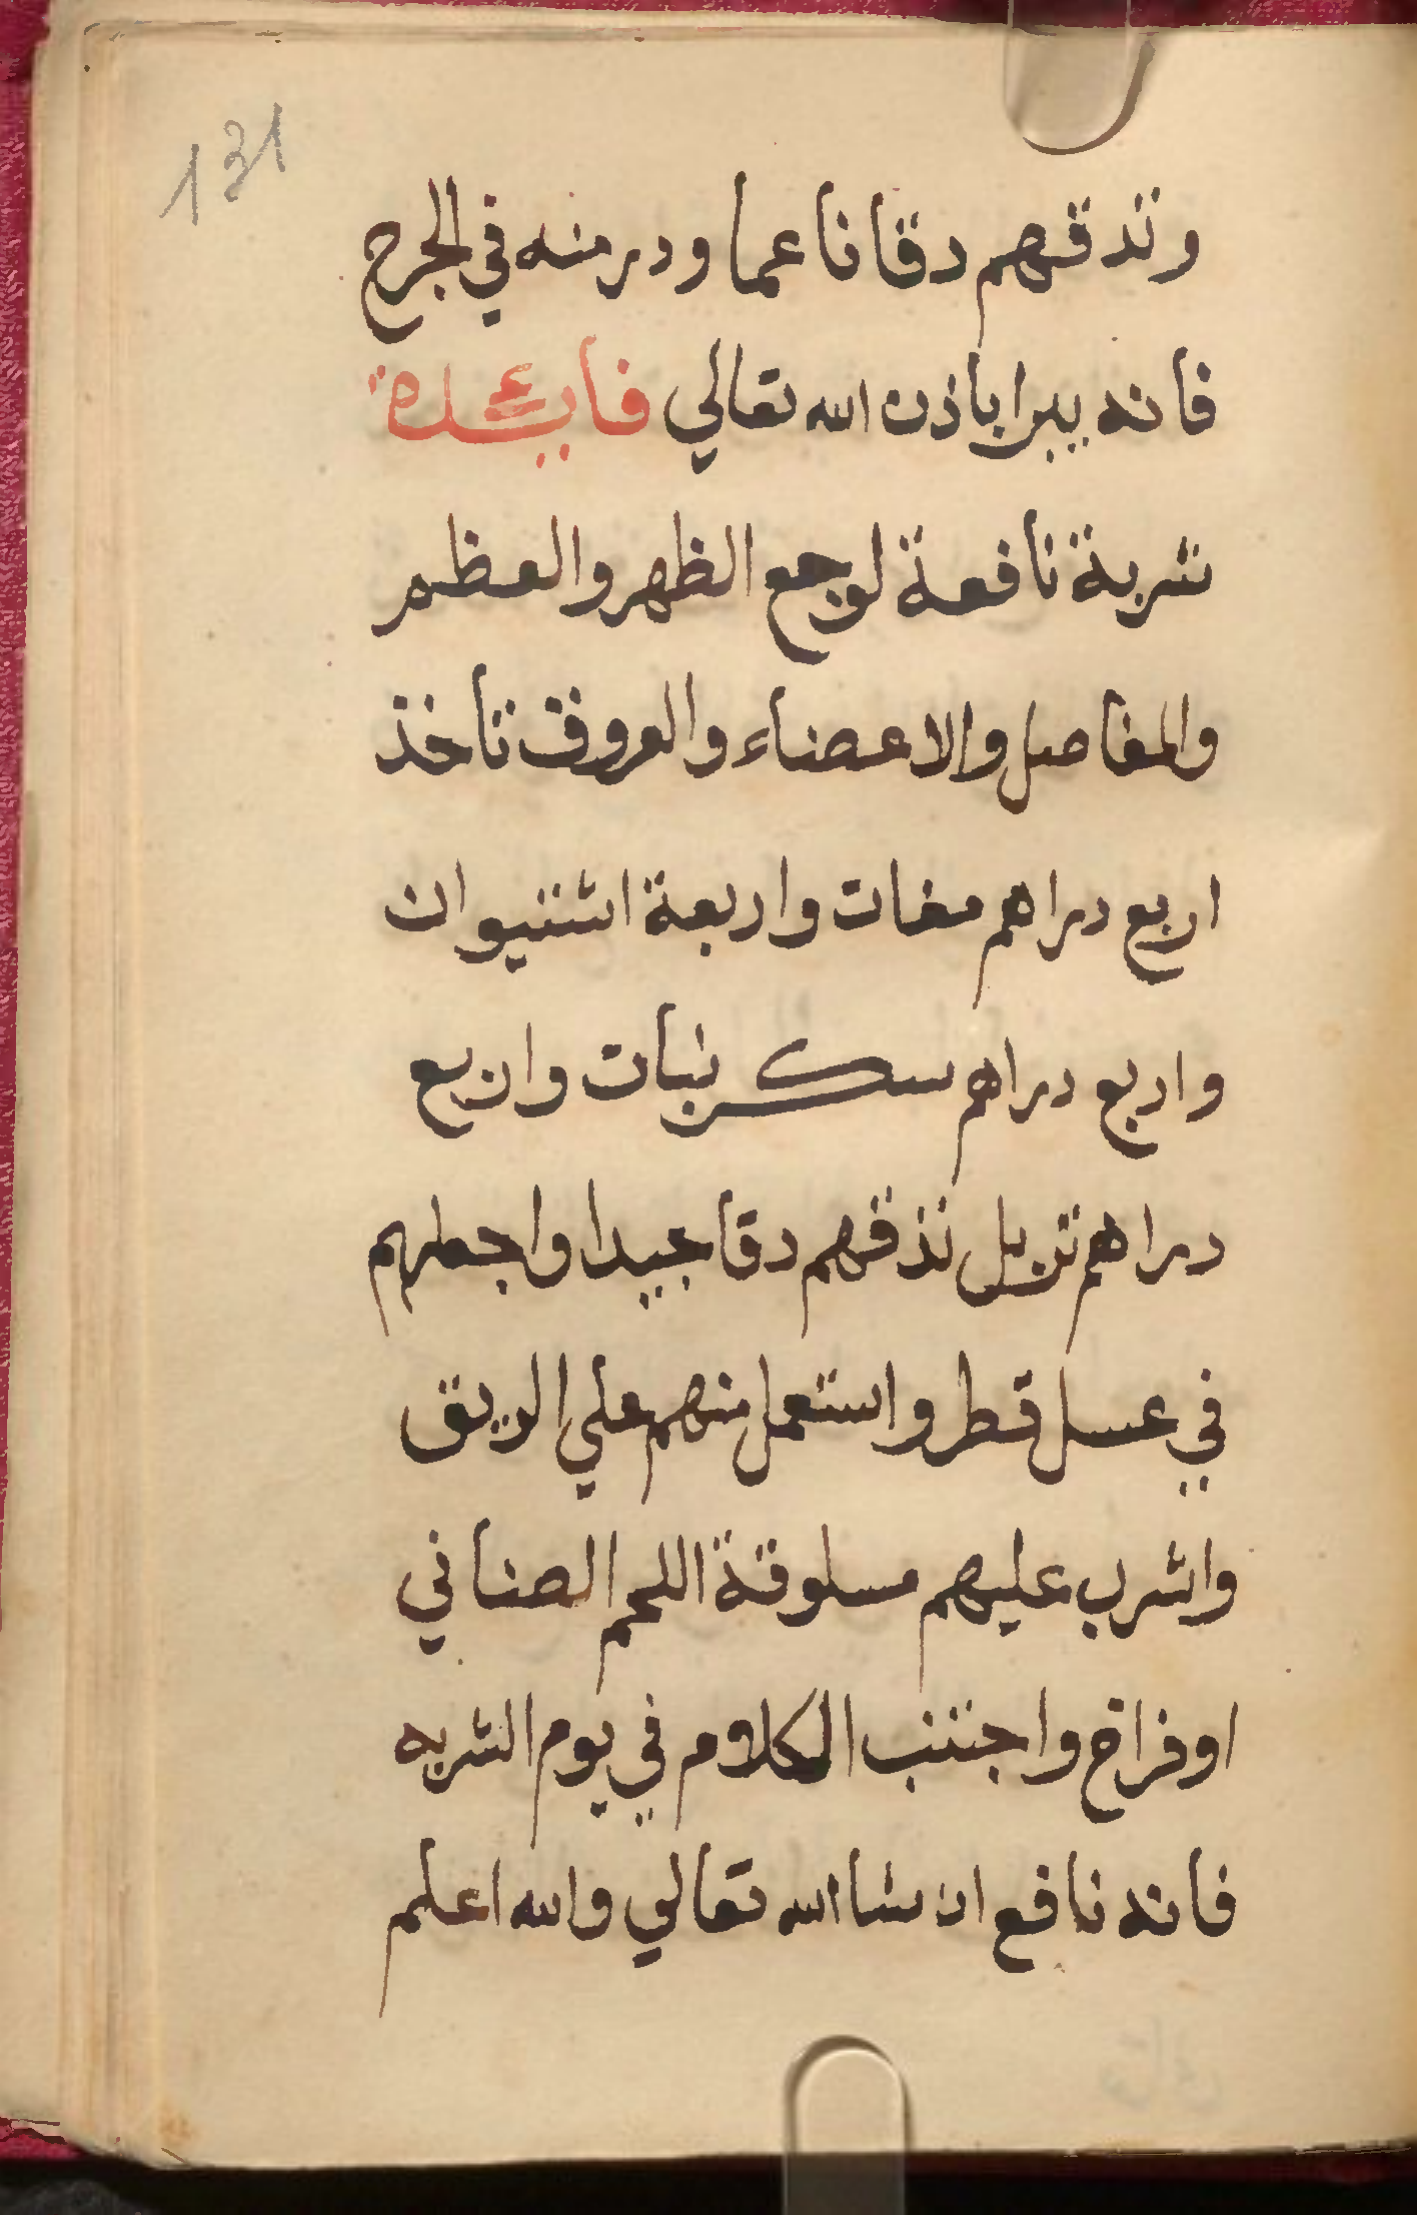 131
وتدقهم دقا ناعما ودر منه في الجرح
فانه يبرا باذن الله تعالي فايدة
شربة نافعة لوجع الظهر والعظم
والمفاصل والاعضاء والعروق تاخذ
اربع دراهم مغات واربعة اشنيوان
واربع دراهم سكر نبات واربع
دراهم تربل تدقهم دقا جيدا واجعلهم
في عسل قطر واستعمل منهم علي الريق
واشرب عليهم مسلوقة اللحم الضاني
او فراخ واجتنب الكلام في يوم الشربه
فانه نافع ان شا الله تعالي والله اعلم